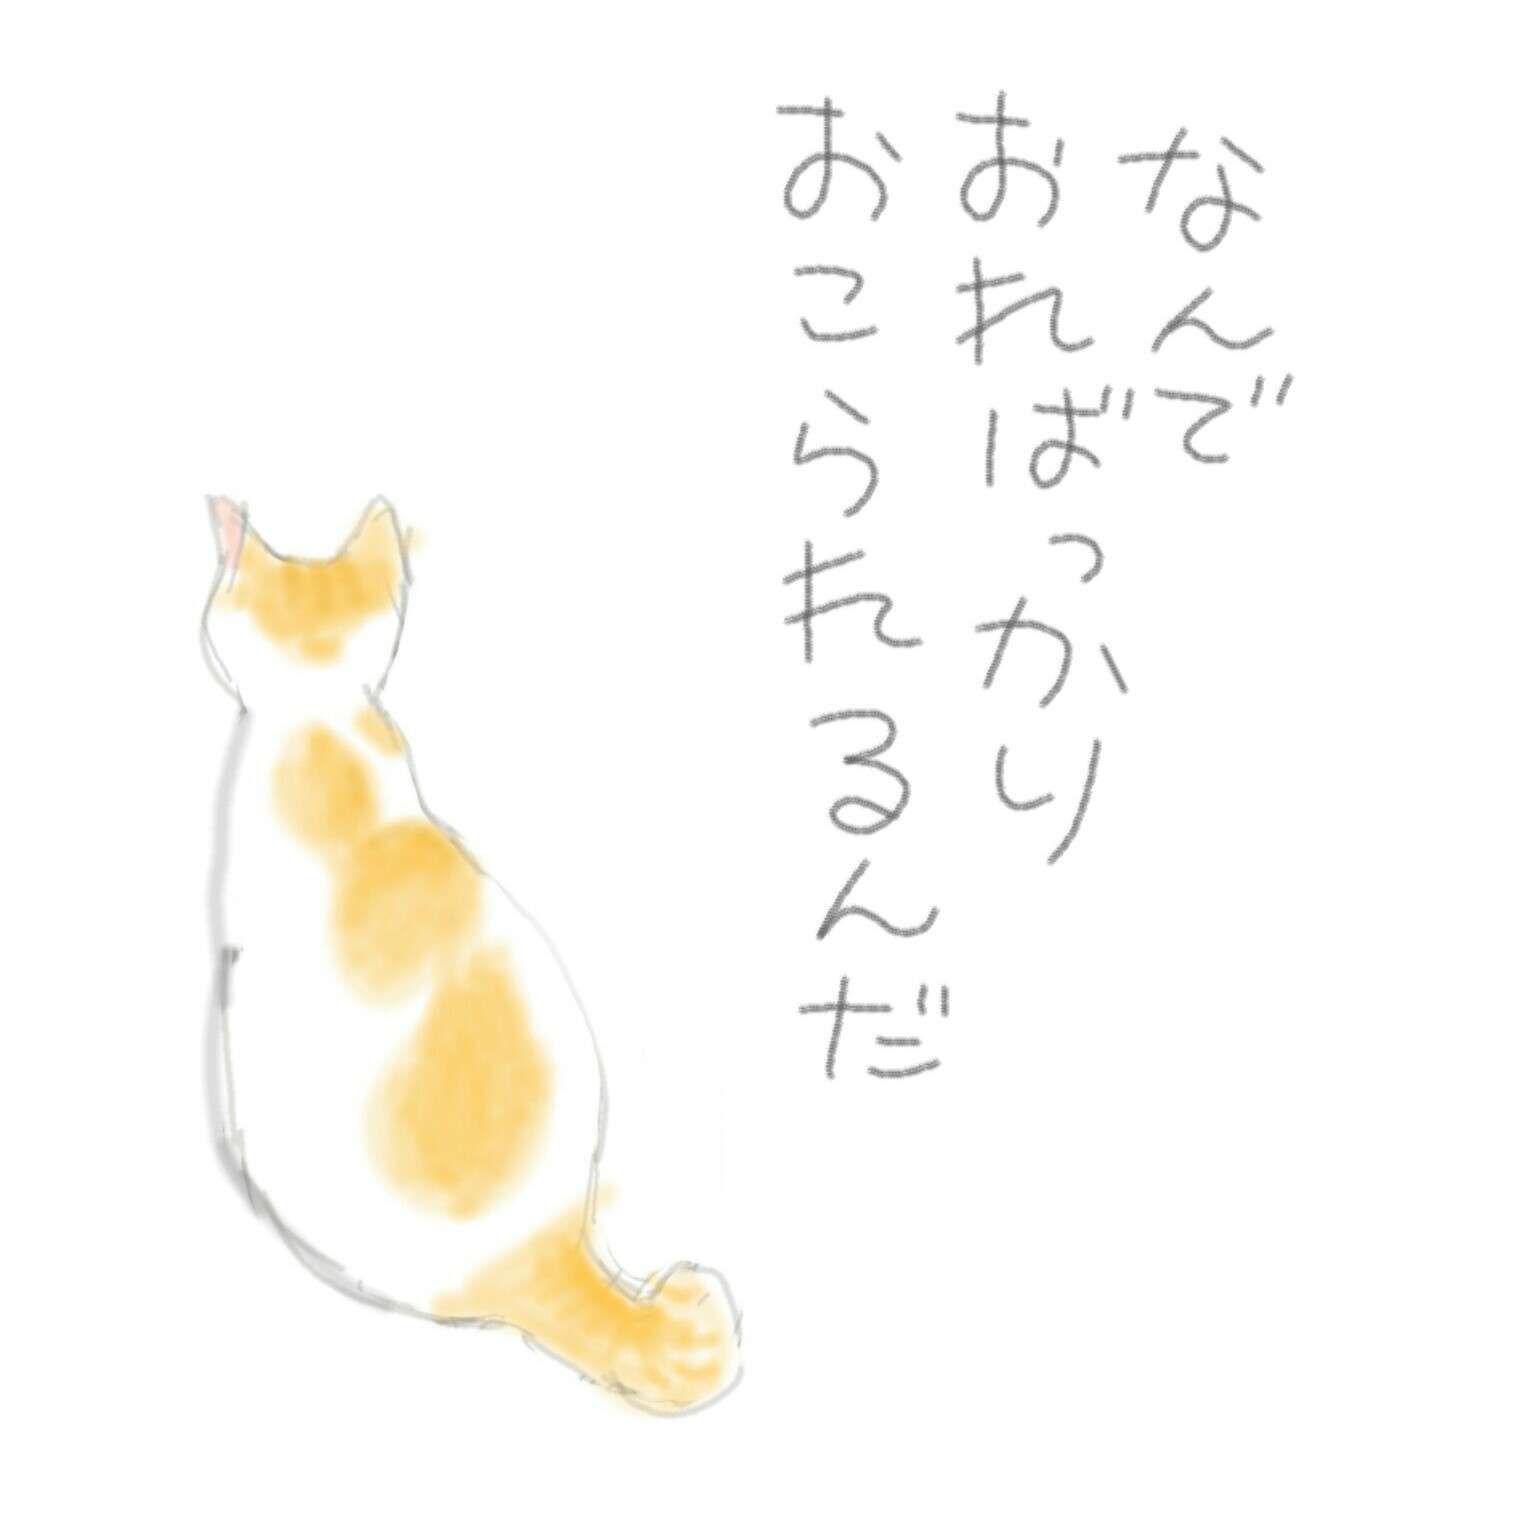 なんで
おればっかり
おこられるんだ